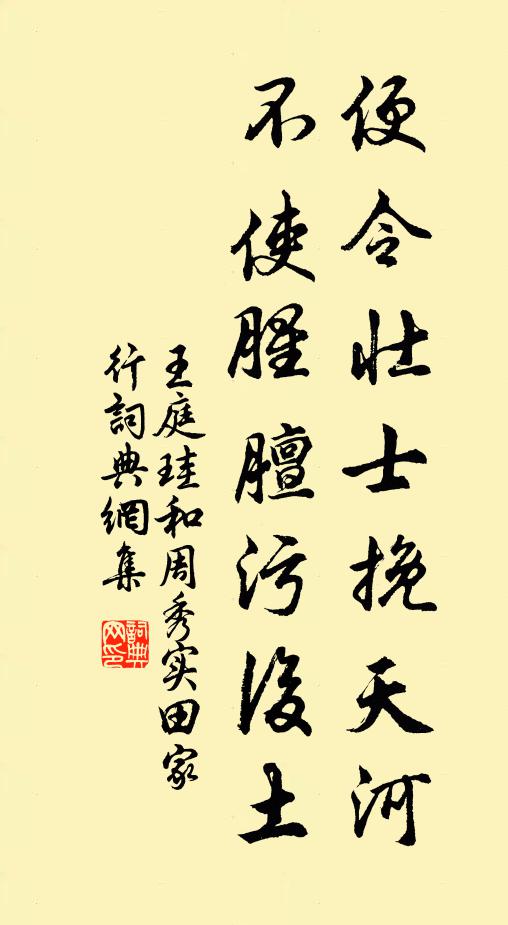 便令壮士挽天河
不使腥膻污後土
王庭珪和周秀实田家
行詞典網集
詞典
网印